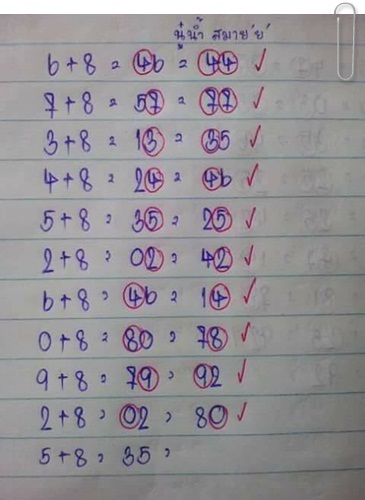 นู๋น้ำ สมาย'ย์'
6+8 = 46 = 44 ✓
7+8 = 57 = 77 ✓
3+8 = 13 = 35 ✓
4+8 = 24 = 46 ✓
5+8 = 35 = 25 ✓
2+8 = 02 = 42 ✓
6+8 = 46 = 14 ✓
0+8 = 80 = 78 ✓
9+8 = 79 = 92 ✓
2+8 = 02 = 80 ✓
5+8 = 35 =